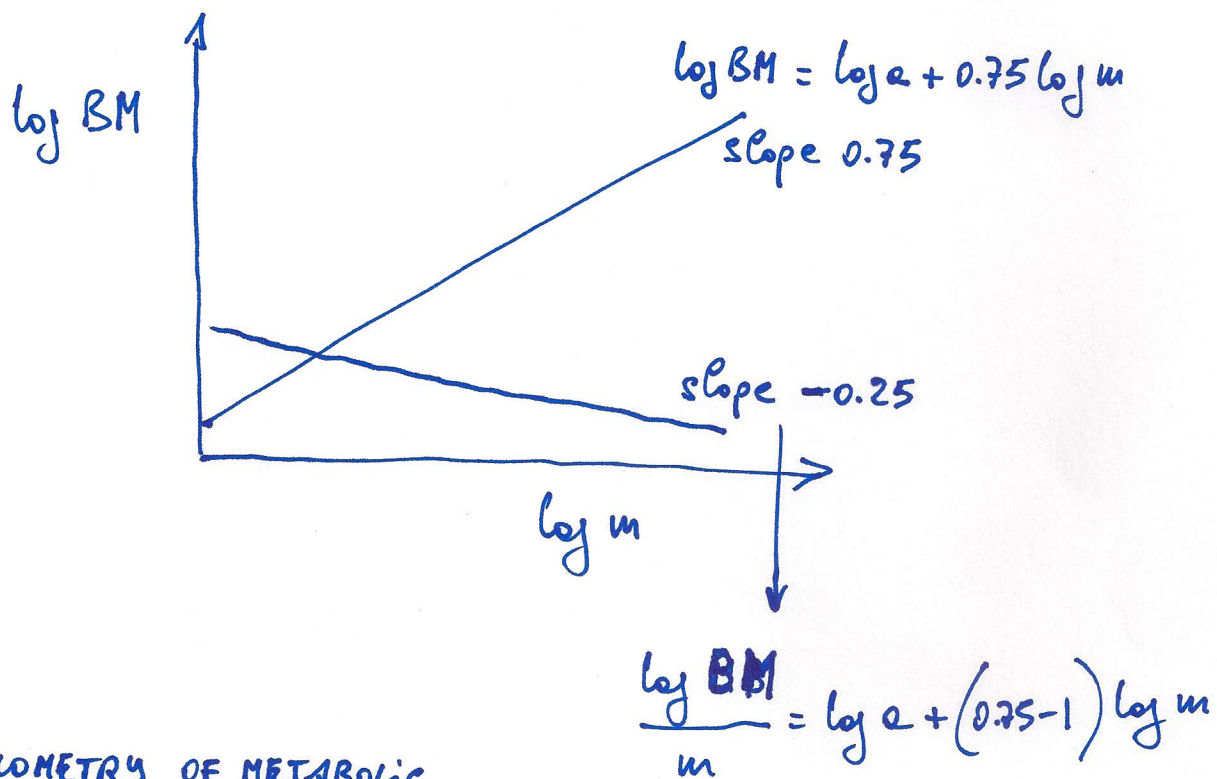 log BM
log BM = log a + 0.75 log m
slope 0.75
slope -0.25
log m
log BM
m
= log a + (0.75-1) log m
OMETRY OF METABOLIC